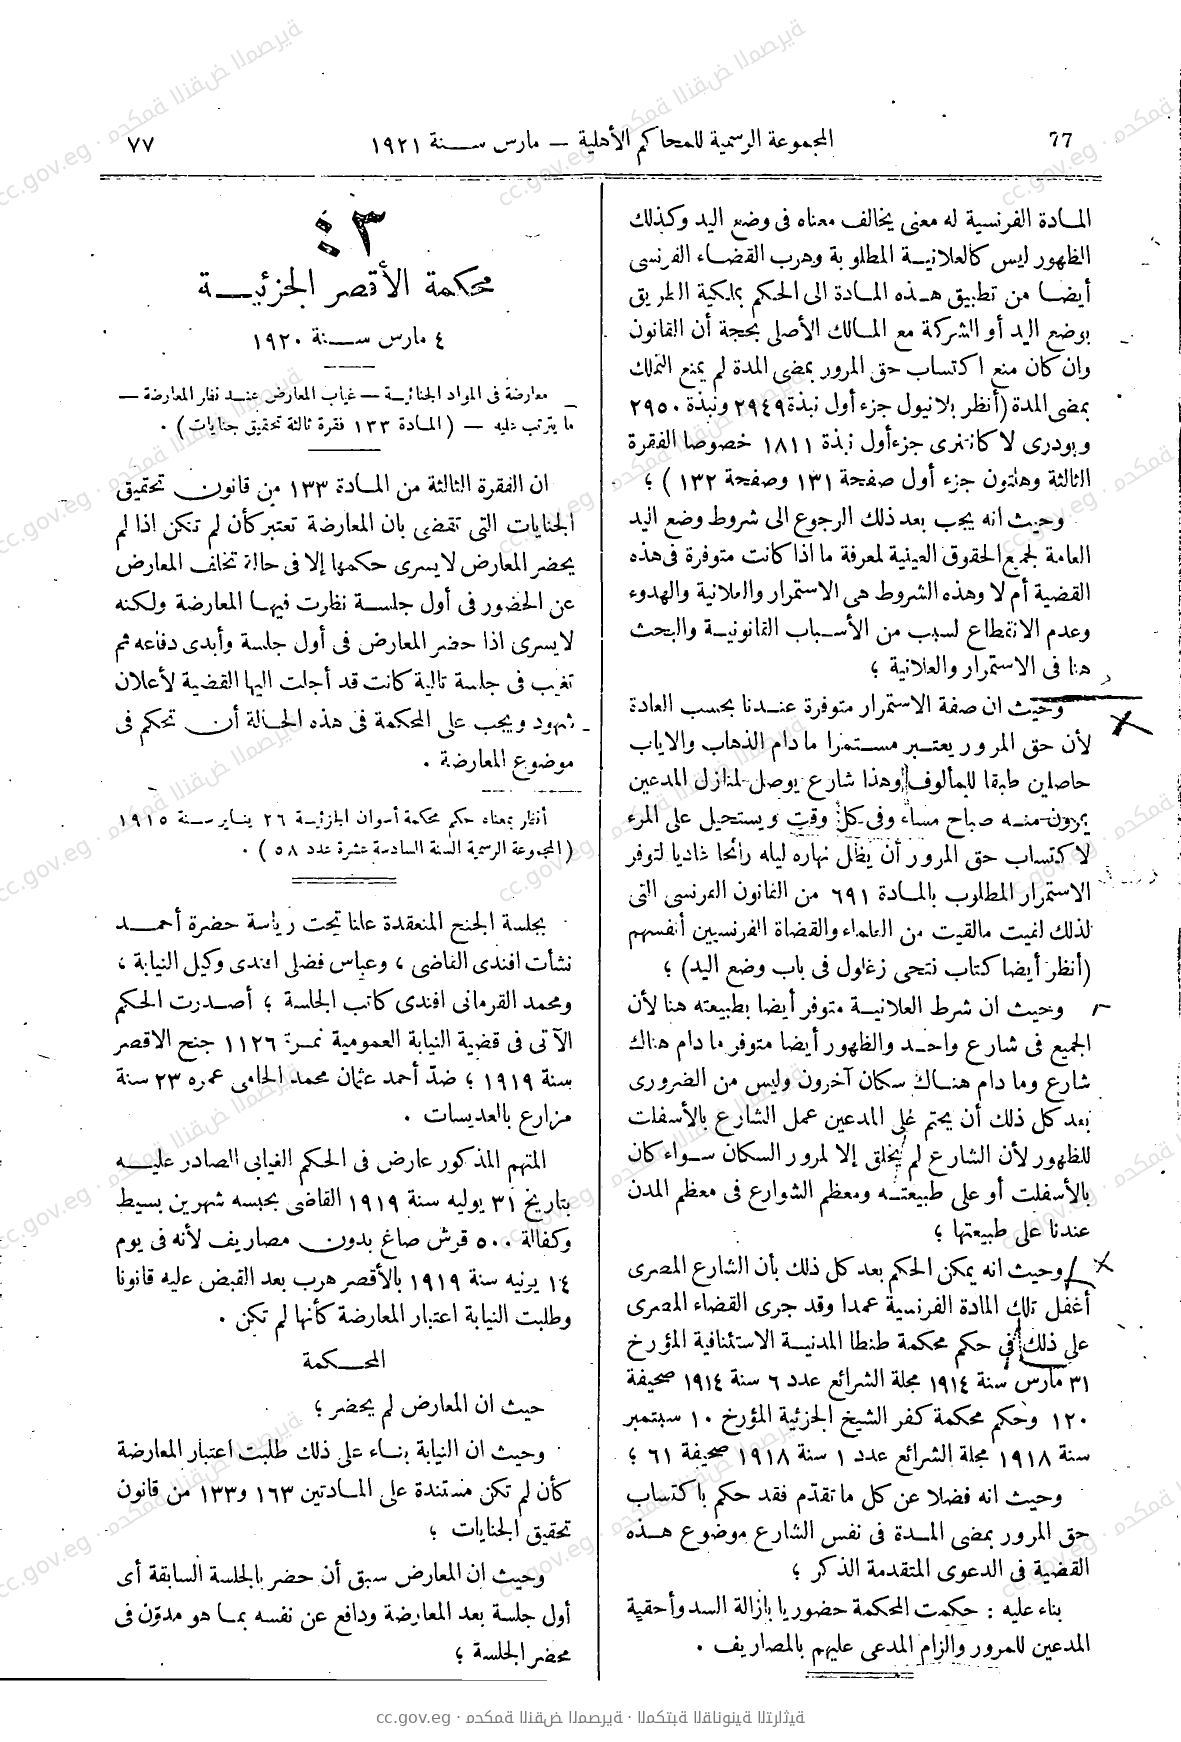 77
المجموعة الرسمية للمحاكم الأهلية — مارس سنة ١٩٢١
٧٧
المادة الفرنسية له معنى يخالف معناه فى وضع اليد وكذلك
الظهور ليس كالعلانية المطلوبة وهرب القضاء الفرنسى
أيضا من تطبيق هذه المادة الى الحكم بملكية الطريق
بوضع اليد أو الشركة مع المالك الأصلى بحجة أن القانون
وان كان منع اكتساب حق المرور بمضى المدة لم يمنع التملك
بمضى المدة (أنظر بلانيول جزء أول نبذة ٢٩٤٩ ونبذة ٢٩٥٠
وبودرى لاكانترى جزء أول نبذة ١٨١١ خصوصا الفقرة
الثالثة وهلتون جزء أول صفحة ١٣١ وصفحة ١٣٢ ) ؛
وحيث انه يجب بعد ذلك الرجوع الى شروط وضع اليد
العامة لجميع الحقوق العينية لمعرفة ما اذا كانت متوفرة فى هذه
القضية أم لا وهذه الشروط هى الاستمرار والعلانية والهدوء
وعدم الانقطاع لسبب من الأسباب القانونية والبحث
هنا فى الاستمرار والعلانية ؛
وحيث ان صفة الاستمرار متوفرة عندنا بحسب العادة
لأن حق المرور يعتبر مستمرا ما دام الذهاب والاياب
حاصلين طبقا للمألوف وهذا شارع يوصل لمنازل المدعين
يمرون منه صباح مساء وفى كل وقت ويستحيل على المرء
لاكتساب حق المرور أن يظل نهاره ليله رائحا غاديا لتوفر
الاستمرار المطلوب بالمادة ٦٩١ من القانون الفرنسى التى
لذلك لقيت مالقيت من العلماء والقضاة الفرنسيين أنفسهم
(أنظر أيضا كتاب نتحى زغلول فى باب وضع اليد) ؛
وحيث ان شرط العلانية متوفر أيضا بطبيعته هنا لأن
الجميع فى شارع واحد والظهور أيضا متوفر ما دام هناك
شارع وما دام هناك سكان آخرون وليس من الضرورى
بعد كل ذلك أن يحتم على المدعين عمل الشارع بالأسفلت
للظهور لأن الشارع لم يخلق إلا لمرور السكان سواء كان
بالأسفلت أو على طبيعته ومعظم الشوارع فى معظم المدن
عندنا على طبيعتها ؛
وحيث انه يمكن الحكم بعد كل ذلك بأن الشارع المصرى
أغفل تلك المادة الفرنسية عمدا وقد جرى القضاء المصرى
على ذلك فى حكم محكمة طنطا المدنية الاستئنافية المؤرخ
٣١ مارس سنة ١٩١٤ مجلة الشرائع عدد ٦ سنة ١٩١٤ صحيفة
١٢٠ وحكم محكمة كفر الشيخ الجزئية المؤرخ ١٠ سبتمبر
سنة ١٩١٨ مجلة الشرائع عدد ١ سنة ١٩١٨ صحيفة ٦١ ؛
وحيث انه فضلا عن كل ما تقدّم فقد حكم باكتساب
حق المرور بمضى المدة فى نفس الشارع موضوع هذه
القضية فى الدعوى المتقدمة الذكر ؛
بناء عليه : حكمت المحكمة حضوريا بازالة السد وأحقية
المدعين للمرور والزام المدعى عليهم بالمصاريف .
محكمة الأقصر الجزئية
٤ مارس سنة ١٩٢٠
معارضة فى المواد الجنائية — غياب المعارض عند نظر المعارضة —
ما يترتب عليه — (المادة ١٣٣ فقرة ثالثة تحقيق جنايات) .
ان الفقرة الثالثة من المادة ١٣٣ من قانون تحقيق
الجنايات التى تقضى بان المعارضة تعتبر كأن لم تكن اذا لم
يحضر المعارض لا يسرى حكمها إلا فى حالة تخلف المعارض
عن الحضور فى أول جلسة نظرت فيها المعارضة ولكنه
لا يسرى اذا حضر المعارض فى أول جلسة وأبدى دفاعه ثم
تغيب فى جلسة تالية كانت قد أجلت اليها القضية لأعلان
شهود ويجب على المحكمة فى هذه الحالة أن تحكم فى
موضوع المعارضة .
أنظر بمعناه حكم محكمة أسوان الجزئية ٢٦ يناير سنة ١٩١٥
(المجموعة الرسمية السنة السادسة عشرة عدد ٥٨ ) .
بجلسة الجنح المنعقدة علنا تحت رياسة حضرة أحمد
نشأت افندى القاضى ، وعباس فضلى افندى وكيل النيابة ،
ومحمد القرمانى افندى كاتب الجلسة ؛ أصدرت الحكم
الآتى فى قضية النيابة العمومية نمرة ١١٢٦ جنح الاقصر
سنة ١٩١٩ ؛ ضدّ أحمد عثمان محمد الحامى عمره ٢٣ سنة
مزارع بالعديسات .
المتهم المذكور عارض فى الحكم الغيابى الصادر عليه
بتاريخ ٣١ يوليه سنة ١٩١٩ القاضى بحبسه شهرين بسيط
وكفالة ٥٠٠ قرش صاغ بدون مصاريف لأنه فى يوم
١٤ يونيه سنة ١٩١٩ بالأقصر هرب بعد القبض عليه قانونا
وطلبت النيابة اعتبار المعارضة كأنها لم تكن .
المحكمة
حيث ان المعارض لم يحضر ؛
وحيث ان النيابة بناء على ذلك طلبت اعتبار المعارضة
كأن لم تكن مستندة على المادتين ١٦٣ و١٣٣ من قانون
تحقيق الجنايات ؛
وحيث ان المعارض سبق أن حضر بالجلسة السابقة أى
أول جلسة بعد المعارضة ودافع عن نفسه بما هو مدوّن فى
محضر الجلسة ؛
cc.gov.eg · محكمة النقض المصرية · المكتبة القانونية التراثية